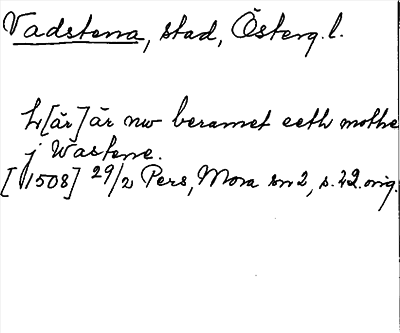 Vadstena, stad, Österg.l.
H[är] är nw beramet eeth mothe
j Wastene.
[1508] 29/2 Pers, Mora sn 2, s. 42. orig.